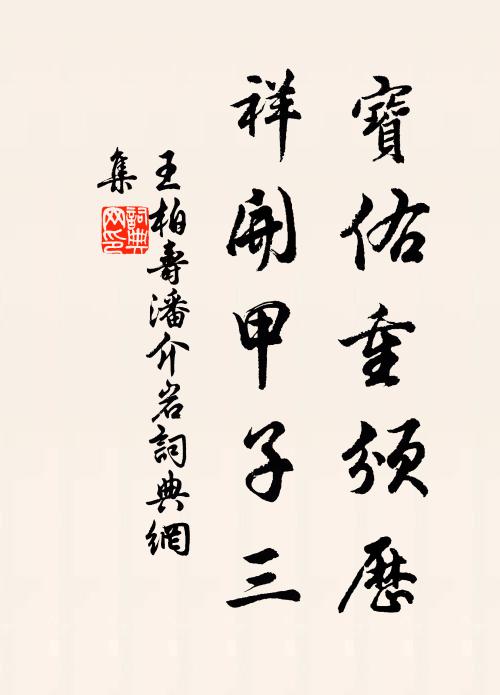 寶佑重頒歷
祥開甲子三
王柏壽潘介岩詞典網
集
詞典网印